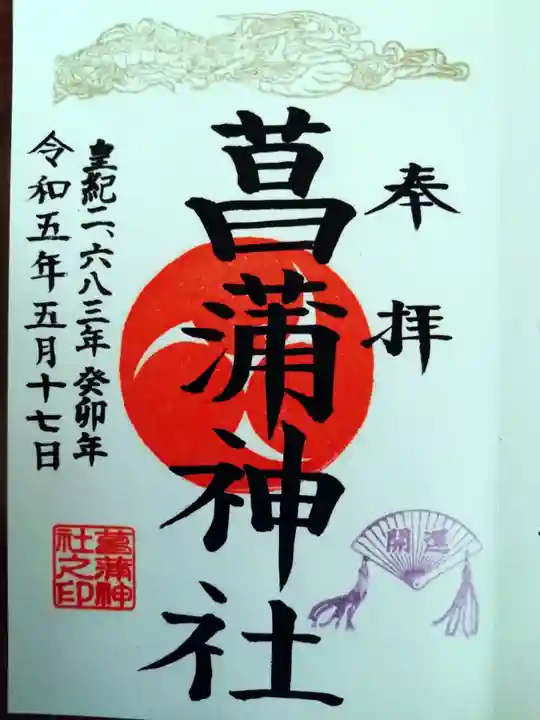 奉拝
菖蒲神社
皇紀二、六八三年癸卯年
令和五年五月十七日
開運
菖蒲神
社之印